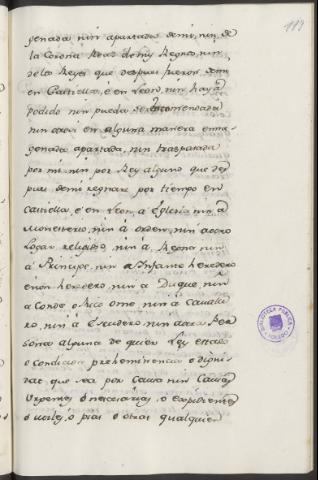 119
genada nin apartada demi, nin de
la Corona Real de mis Regnos, nin
delos Reyes que despues fueron demi
en Castiella, é en Leon, nin haya
podido nin pueda ser encomendada
nin dada en alguna manera enna-
genada apartada, nin traspasada
por mi nin por Rey alguno que des
pues demi regnare por tiempo en
Castiella, é en Leon, á Eglesia nin á
Monesterio, nin á orden, nin á otro
logar religioso, nin á Reyna nin
á Principe, nin á Infante heredero
é non heredero, nin á Duque, nin
á Conde o Rico ome nin á Cavalle
ro, nin á Escudero, nin á otra Per
sona alguna de quier Ley estado
o Condicion preheminencia o digni-
dat que sea por Causa nin Causas
Urgentes ó necesarias, o Expedientes
o utiles, o pias o otras qualquier
BIBLIOTECA PUBLICA
TOLEDO